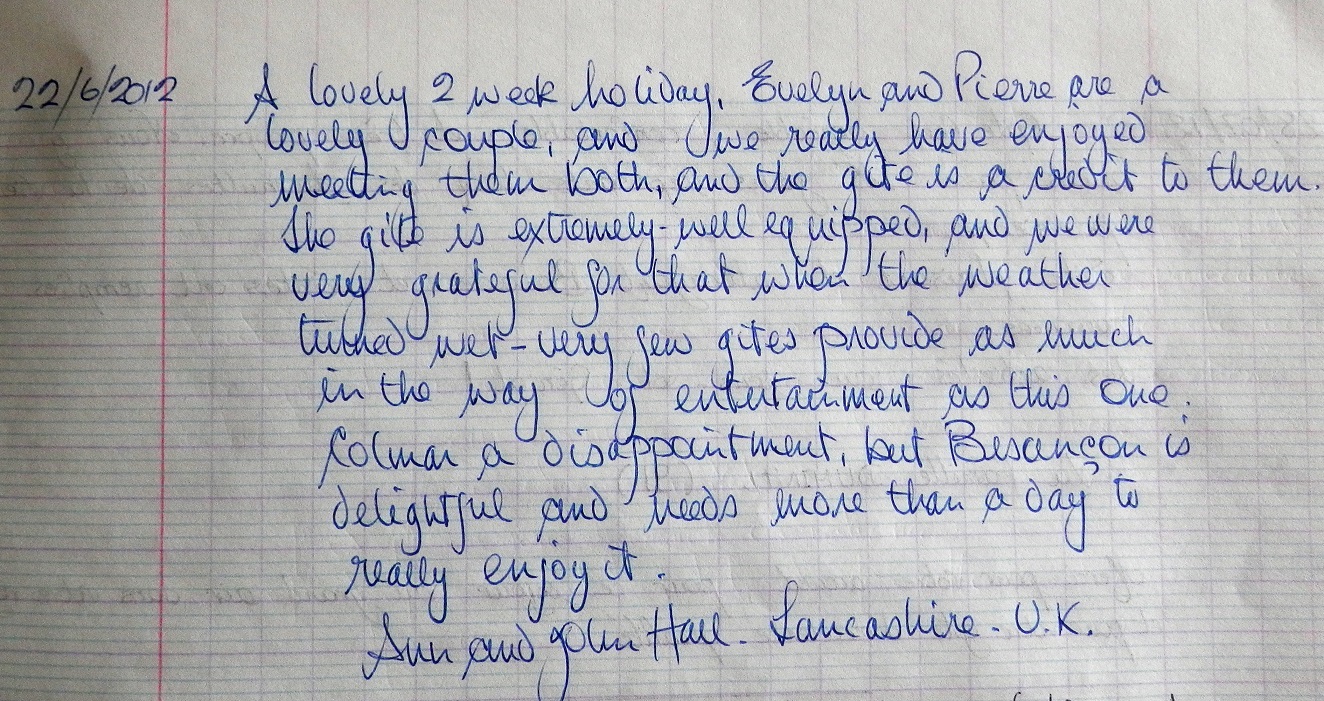 22/6/2012 A lovely 2 week holiday. Evelyn and Pierre are a
lovely couple, and we really have enjoyed
meeting them both, and the gite is a credit to them.
The gite is extremely-well equipped, and we were
very grateful for that when the weather
turned wet - very few gites provide as much
in the way of entertainment as this one.
Colmar a disappointment, but Besançon is
delightful and needs more than a day to
really enjoy it.
Ann and John Hall - Lancashire - U.K.